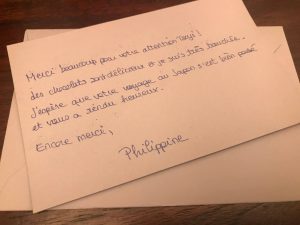 Merci beaucoup pour votre attention Tanji !
des chocolats sont délicieux et je suis très touchée.
J'espère que votre voyage au Japon s'est bien passé
et vous a rendu heureux.
Encore merci,
Philippine